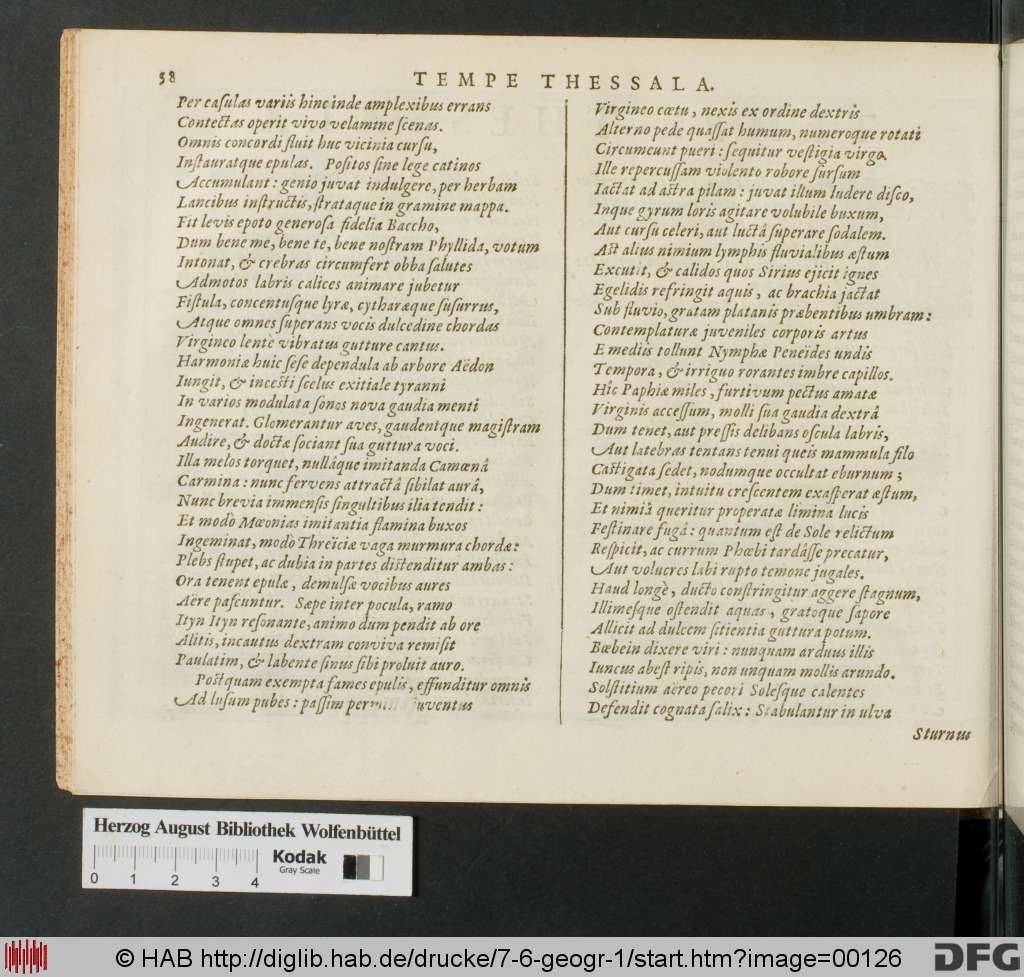 58
TEMPE THESSALA.
Per caſulas variis hinc inde amplexibus errans
Contectas operit vivo velamine ſcenas.
Omnis concordi fluit huc vicinia curſu,
Inſtauratque epulas. Poſitos ſine lege catinos
Accumulant: genio juvat indulgere, per herbam
Lancibus inſtructis, ſtrataque in gramine mappa.
Fit levis epoto generoſa fidelia Baccho,
Dum bene me, bene te, bene noſtram Phyllida, votum
Intonat, & crebras circumfert obba ſalutes
Admotos labris calices animare jubetur
Fiſtula, concentuſque lyræ, cytharæque ſuſurrus,
Atque omnes ſuperans vocis dulcedine chordas
Virgineo lentè vibratus gutture cantus.
Harmoniæ huic ſeſe dependula ab arbore Aëdon
Iungit, & inceſti ſcelus exitiale tyranni
In varios modulata ſonos nova gaudia menti
Ingenerat. Glomerantur aves, gaudentque magiſtram
Audire, & doctæ ſociant ſua guttura voci.
Illa melos torquet, nullâque imitanda Camœnâ
Carmina: nunc fervens attractâ ſibilat aurâ,
Nunc brevia immenſis ſingultibus ilia tendit:
Et modò Mœonias imitantia flamina buxos
Ingeminat, modo Threïciæ vaga murmura chordæ:
Plebs ſtupet, ac dubia in partes diſtenditur ambas:
Ora tenent epulæ, demulſæ vocibus aures
Aëre paſcuntur. Sæpe inter pocula, ramo
Ityn Ityn reſonante, animo dum pendit ab ore
Alitis, incautus dextram conviva remiſit
Paulatim, & labente ſinus ſibi proluit auro.
Poſtquam exempta fames epulis, effunditur omnis
Ad luſum pubes: paſſim juventus
Virgineo cœtu, nexis ex ordine dextris
Alterno pede quaſſat humum, numeroque rotati
Circumeunt pueri: ſequitur veſtigia virgo.
Ille repercuſſam violento robore ſurſum
Iactat ad aſtra pilam: juvat illum ludere diſco,
Inque gyrum loris agitare volubile buxum,
Aut curſu celeri, aut luctâ ſuperare ſodalem.
Aſt alius nimium lymphis fluvialibus æſtum
Excutit, & calidos quos Sirius ejicit ignes
Egelidis refringit aquis, ac brachia jactat
Sub fluvio, gratam platanis præbentibus umbram:
Contemplaturæ juveniles corporis artus
E mediis tollunt Nymphæ Peneïdes undis
Tempora, & irriguo rorantes imbre capillos.
Hîc Paphiæ miles, furtivum pectus amatæ
Virginis acceſſum, molli ſua gaudia dextrâ
Dum tenet, aut preſſis delibans oſcula labris,
Aut latebras tentans tenui queis mammula filo
Caſtigata ſedet, nodumque occultat eburnum;
Dum timet, intuitu creſcentem exaſperat æſtum,
Et nimiâ queritur properatæ limina lucis
Feſtinare fugâ: quantum eſt de Sole relictum
Reſpicit, ac currum Phœbi tardâſſe precatur,
Aut volucres labi rupto temone jugales.
Haud longè, ducto conſtringitur aggere ſtagnum,
Illimeſque oſtendit aquas, gratoque ſapore
Allicit ad dulcem ſitientia guttura potum.
Bœbein dixere viri: nunquam arduus illis
Iuncus abeſt ripis, non unquam mollis arundo.
Solſtitium aëreo pecori Soleſque calentes
Defendit cognata ſalix: Stabulantur in ulva
Sturnus
Herzog August Bibliothek Wolfenbüttel
Kodak
Gray Scale
0 1 2 3 4
© HAB http://diglib.hab.de/drucke/7-6-geogr-1/start.htm?image=00126
DFG